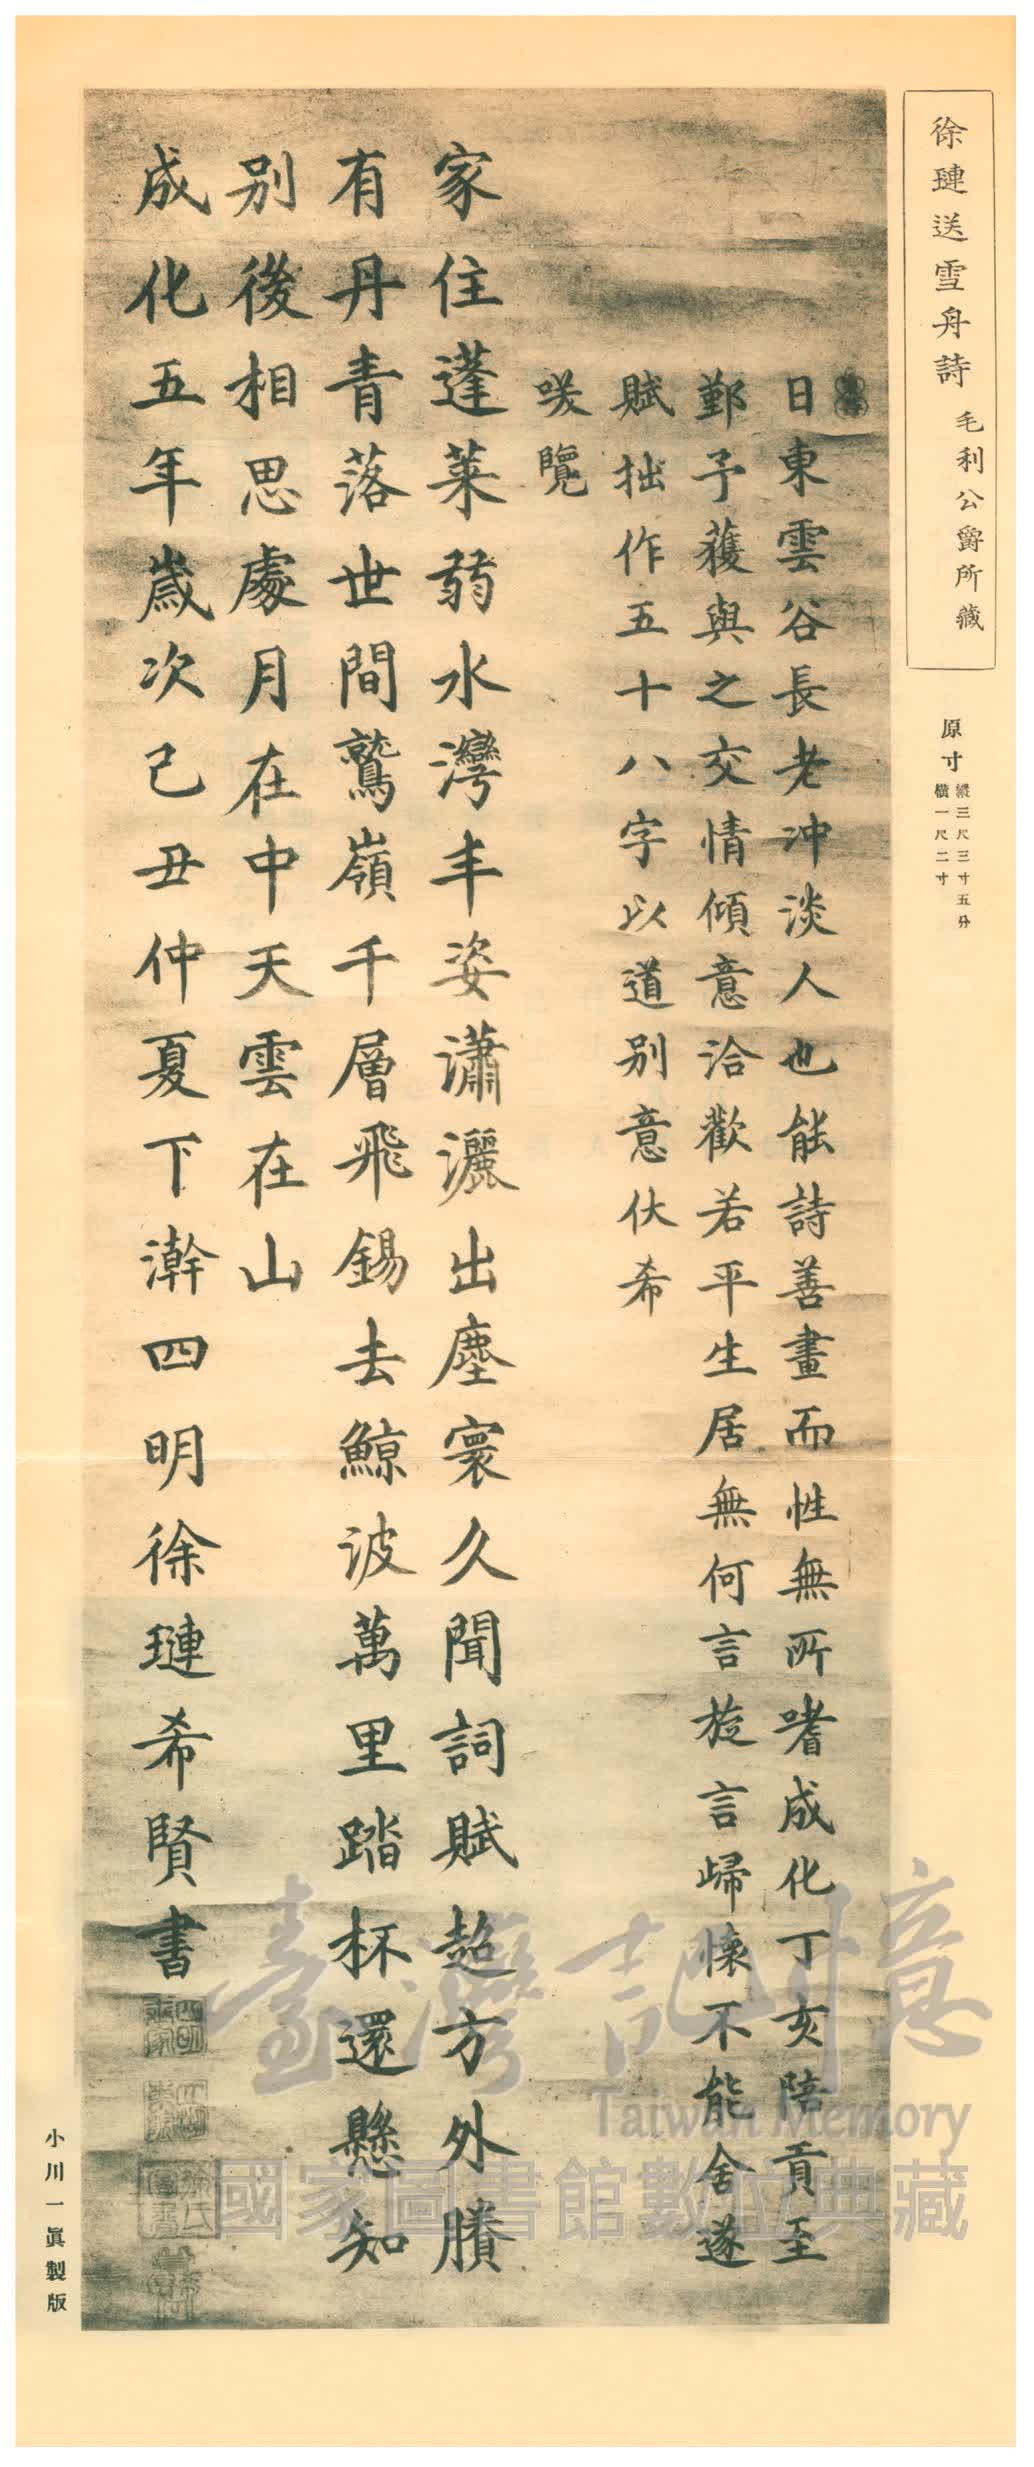 徐璉送雪舟詩 毛利公爵所藏
原寸 縱三尺三寸五分
橫一尺二寸
日東雲谷長老冲淡人也能詩善畫而性無所嗜成化丁亥陪貢至
鄞予獲與之交情傾意洽歡若平生居無何言旋言歸懷不能舍遂
賦拙作五十八字以道別意伏希
咲覽
家住蓬萊弱水灣丰姿瀟灑出塵寰久聞詞賦超方外賸
有丹青落世間鷲嶺千層飛錫去鯨波萬里踏杯還懸知
別後相思處月在中天雲在山
成化五年歲次己丑仲夏下澣四明徐璉希賢書
小川一眞製版
臺灣記憶
Taiwan Memory
國家圖書館數位典藏